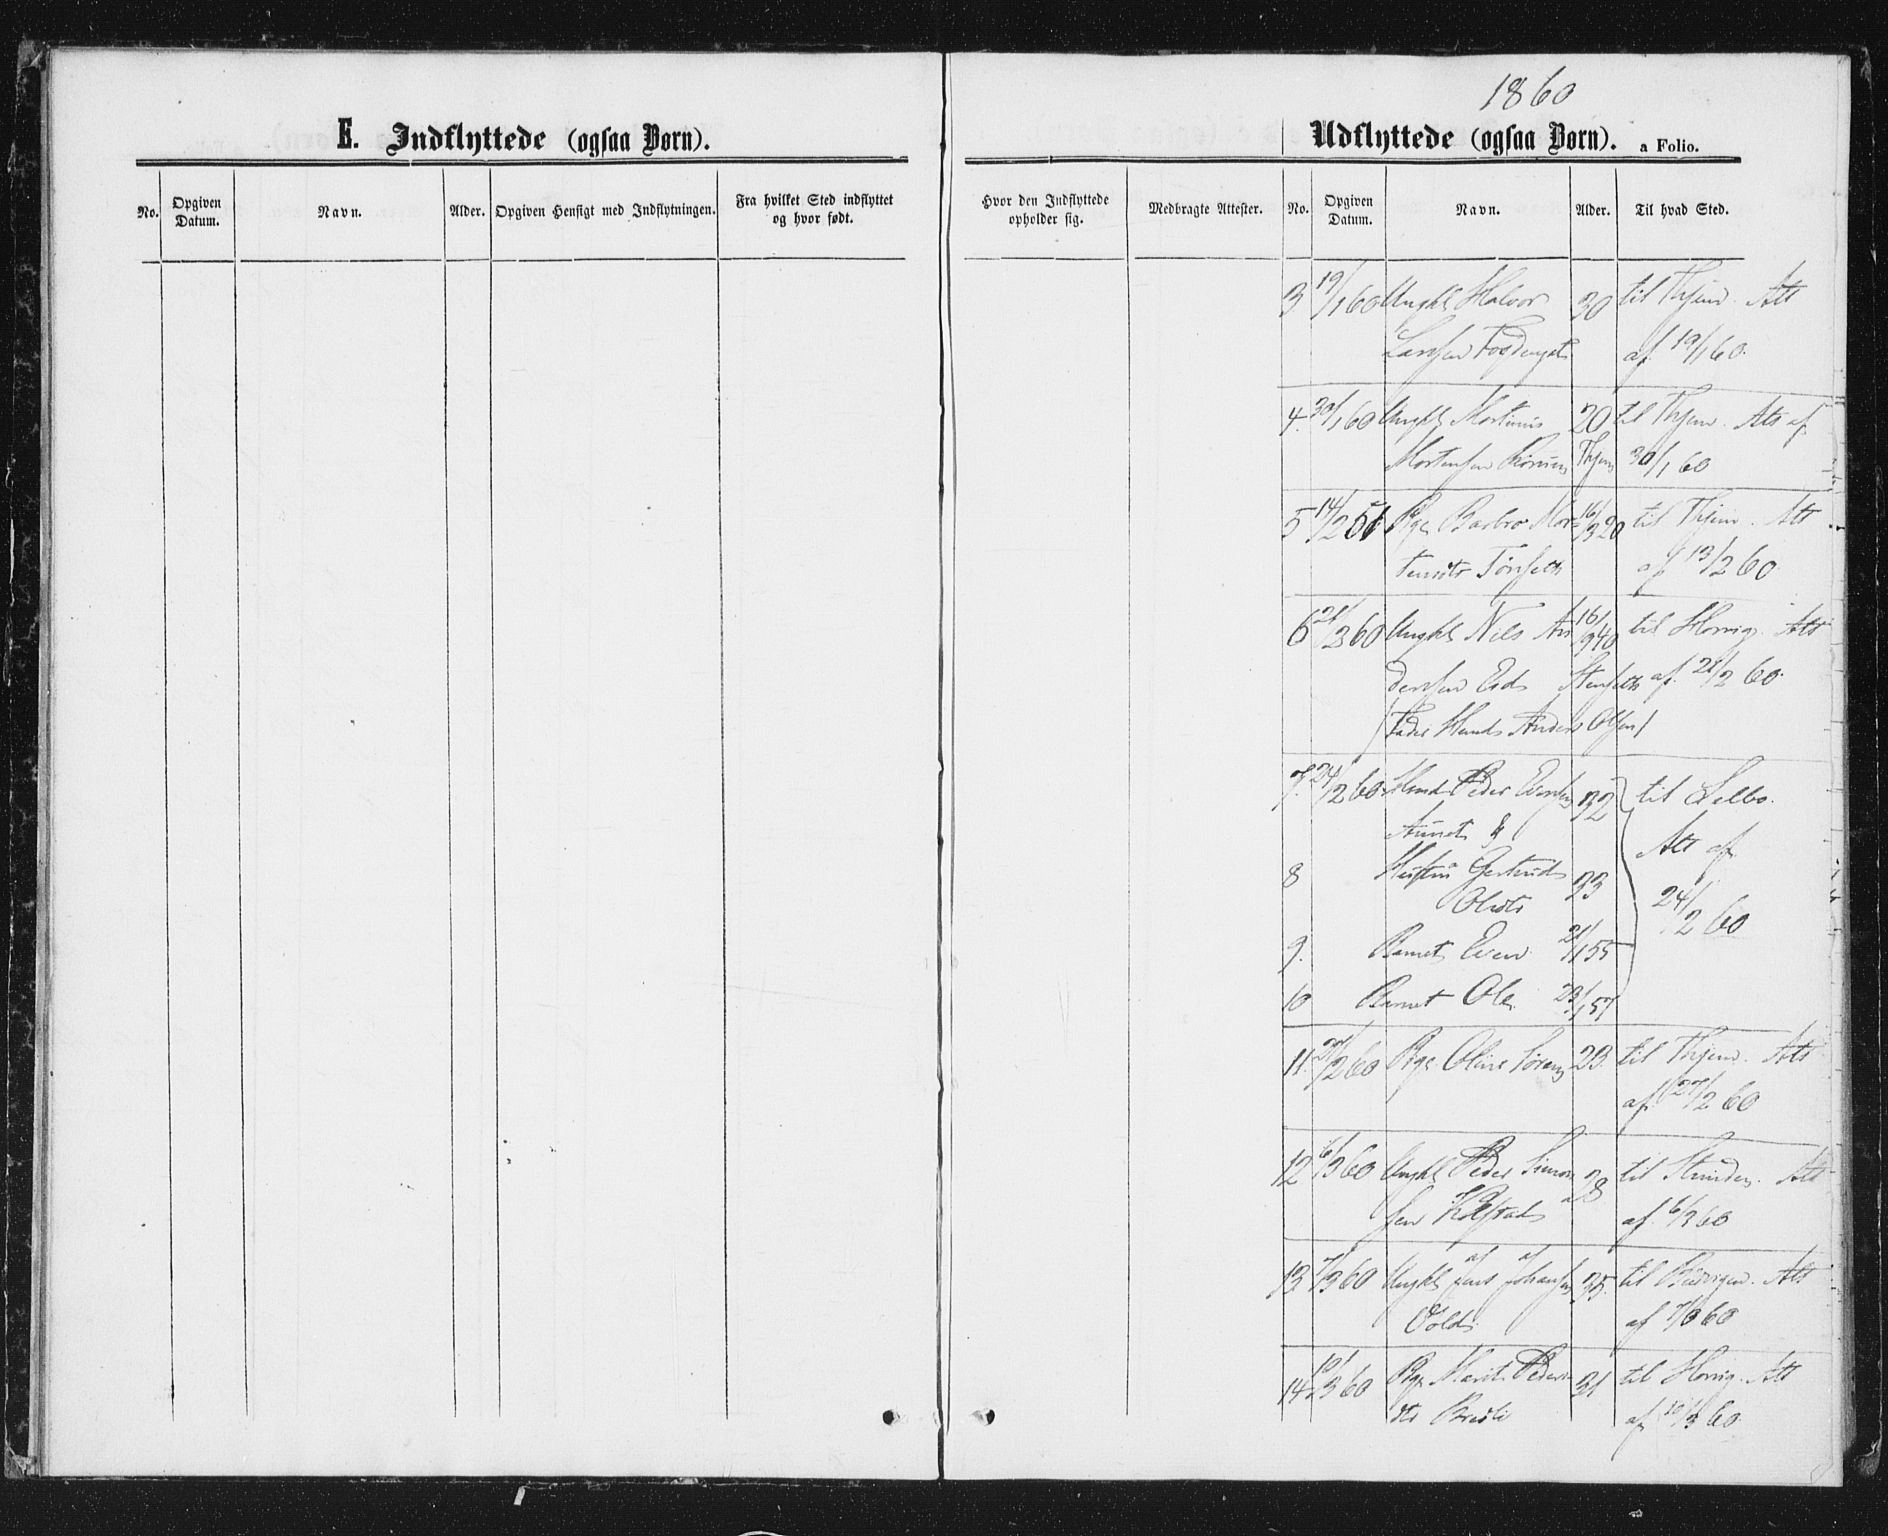 1860
E. Indflyttede (ogsaa Børn).
Udflyttede (ogsaa Børn). a Folio.
No. Opgiven Datum. Navn. Alder. Opgiven Hensigt med Indflytningen. Fra hvilket Sted indflyttet og hvor født.
Hvor den Indflyttede opholder sig. Medbragte Attester. No. Opgiven Datum. Navn. Alder. Til hvad Sted.
3 19/1 60 Ungkl Halvor 30 til Thjem. Att
af 19/1 60.
4. 30/1 60 Ungkl Mortinus 20 til Thjem. Att af
Mortensen Thjem 30/1 60
5 14/2 Pige Barbro Mor- 16/3 20 til Thjem. Att
tensdtr Tønseth af 13/2 60
6 21/2 60 Ungkl Nils An 16/9 40 til Horrig. Att
dersen Eid Stenseth af 21/2 60.
(Fader Huusmd Anders Olsen)
7. 24/2 60 Huusmd Peder Evensen 32 til Selbo.
Aunet & Att af
8 Hustru Gertrud 33 24/2 60
Olsdtr
9. Barnet Even 21/11 55
10 Barnet Ole 23/1 57
11. 27/2 60 Pige Oline Sørens 23. til Thjem. Att
af 27/2 60
12 6/3 60 Ungkl Peder Simon 28 til Strinden. Att
sen Kolstad af 6/3 60
13 7/3 60 Ungkl Jens Johansen 35. til Børsen. Att
Vold af 7/3 60
14. 10/3 60 Pige Marit Peders 31 til Horrig. Att
dtr af 10/3 60.